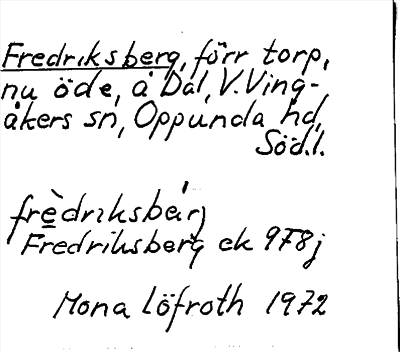 Fredriksberg, förr torp,
nu öde, å Dal, V. Ving-
åkers sn, Oppunda hd,
Söd.l.
frèdriksbärj
Fredriksberg ek 9F8j
Mona Löfroth 1972